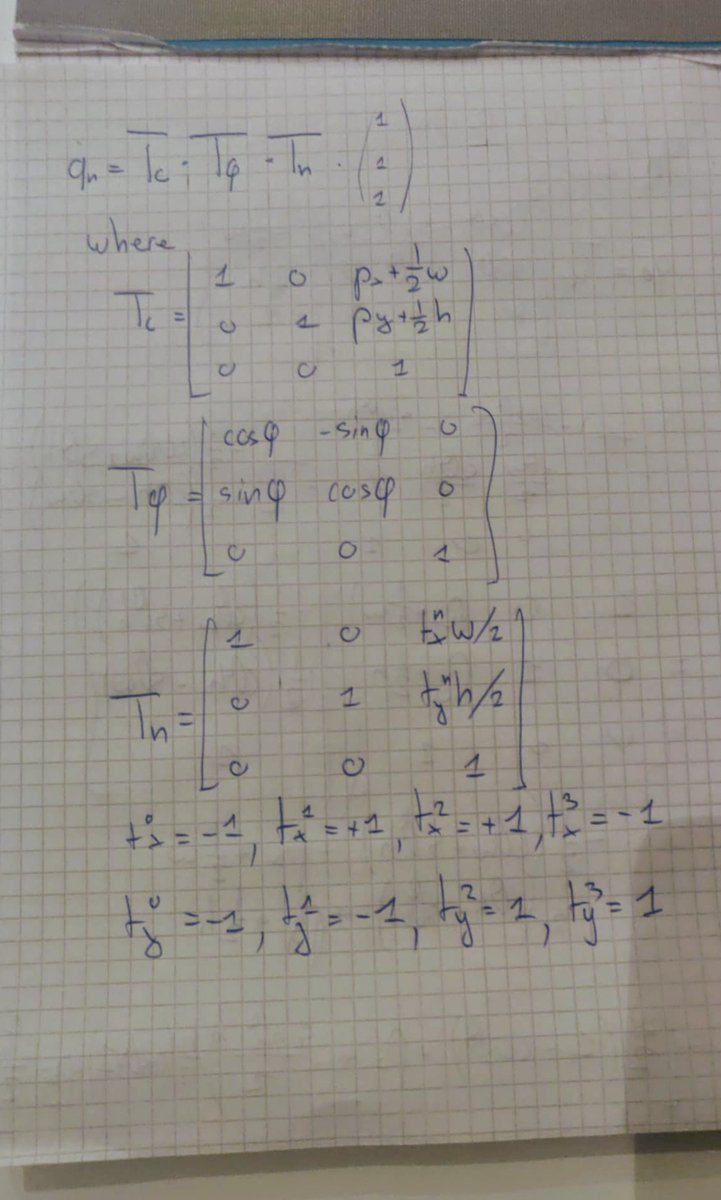 qn = Tc · Tφ · Tn · (1 1 1)
where
Tc = [1 0 px+½w
0 1 py+½h
0 0 1]
Tφ = [cosφ -sinφ 0
sinφ cosφ 0
0 0 1]
Tn = [1 0 tₓⁿw/2
0 1 t_yⁿh/2
0 0 1]
tₓ⁰ = -1, tₓ¹ = +1, tₓ² = +1, tₓ³ = -1
t_y⁰ = -1, t_y¹ = -1, t_y² = 1, t_y³ = 1